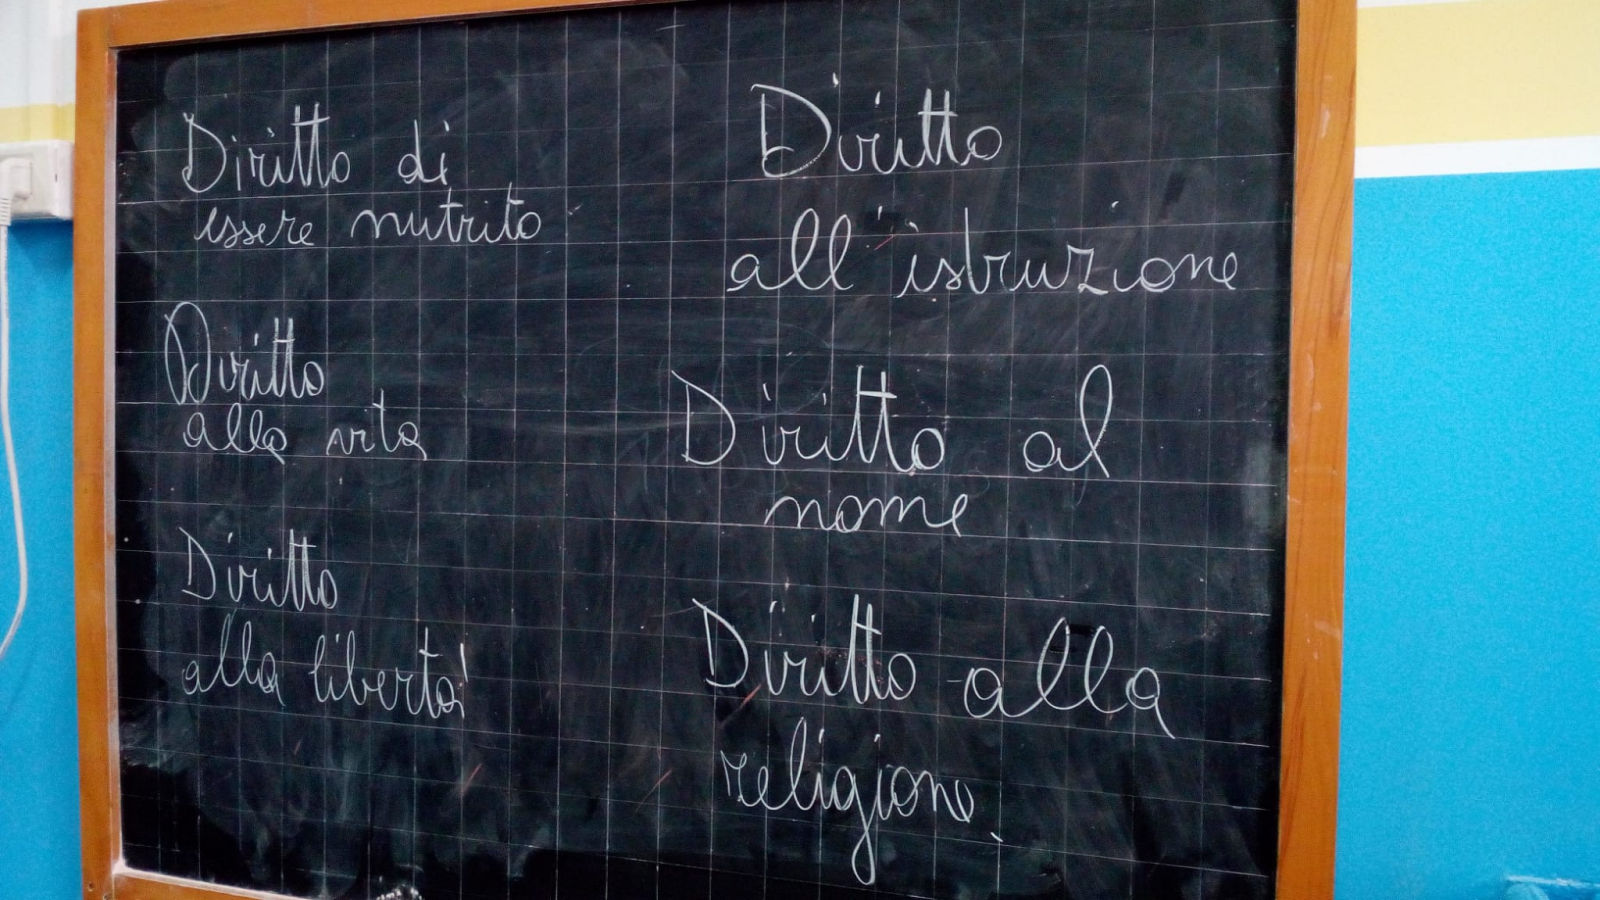 Diritto di
essere nutrito
Diritto
alla vita
Diritto
alla libertà
Diritto
all'istruzione
Diritto al
nome
Diritto alla
religione